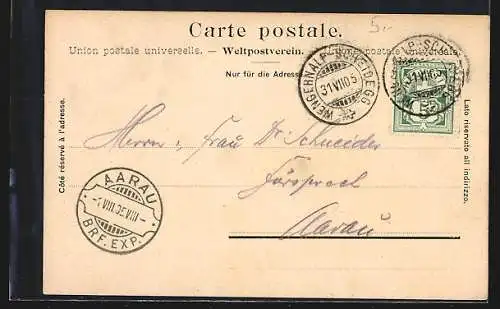 5.-
Carte postale.
Union postale universelle. — Weltpostverein. — Unione postale universale.
Nur für die Adresse
WENGERNALP-SCHEIDEGG
31 VIII 05
Côté réservé à l'adresse.
Lato riservato all'indirizzo.
Herrn & Frau Dr Schneider
Fürsprech
Aarau
AARAU
BRF. EXP.